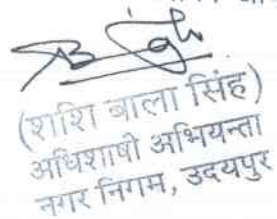 (शशि बाला सिंह)
अधिशाषी अभियन्ता
नगर निगम, उदयपुर